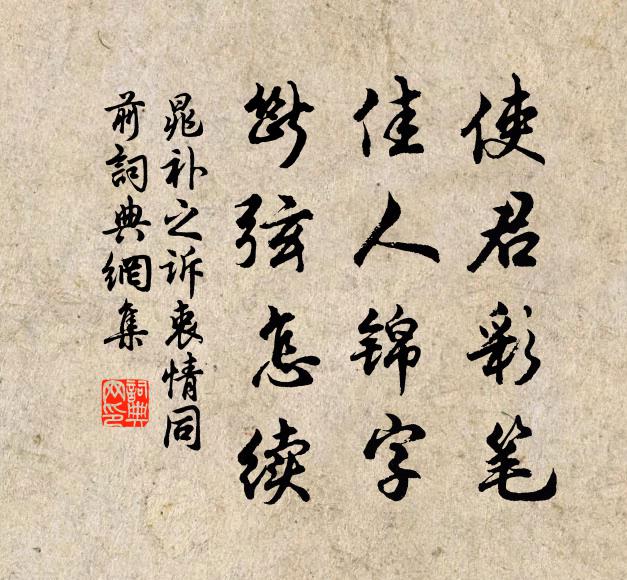 使君彩笔
佳人锦字
断弦怎续
晁补之诉衷情同
前词典网集
词典
网印